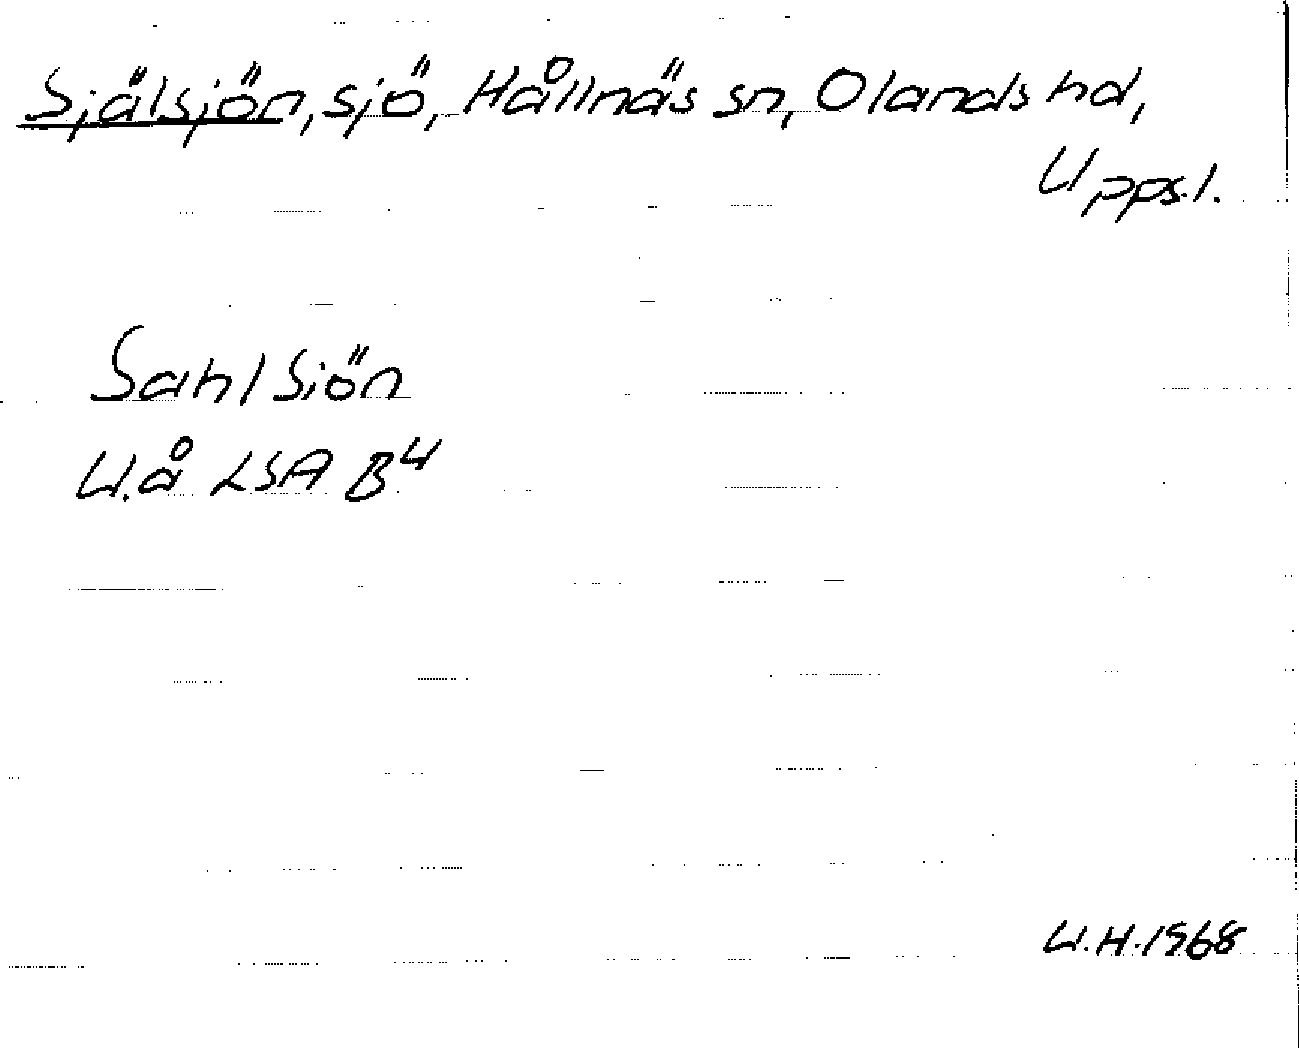 Själsjön, sjö, Hållnäs sn, Olands hd,
Upps.l.
Sahlsiön
U.å LSA B4
U.H. 1968